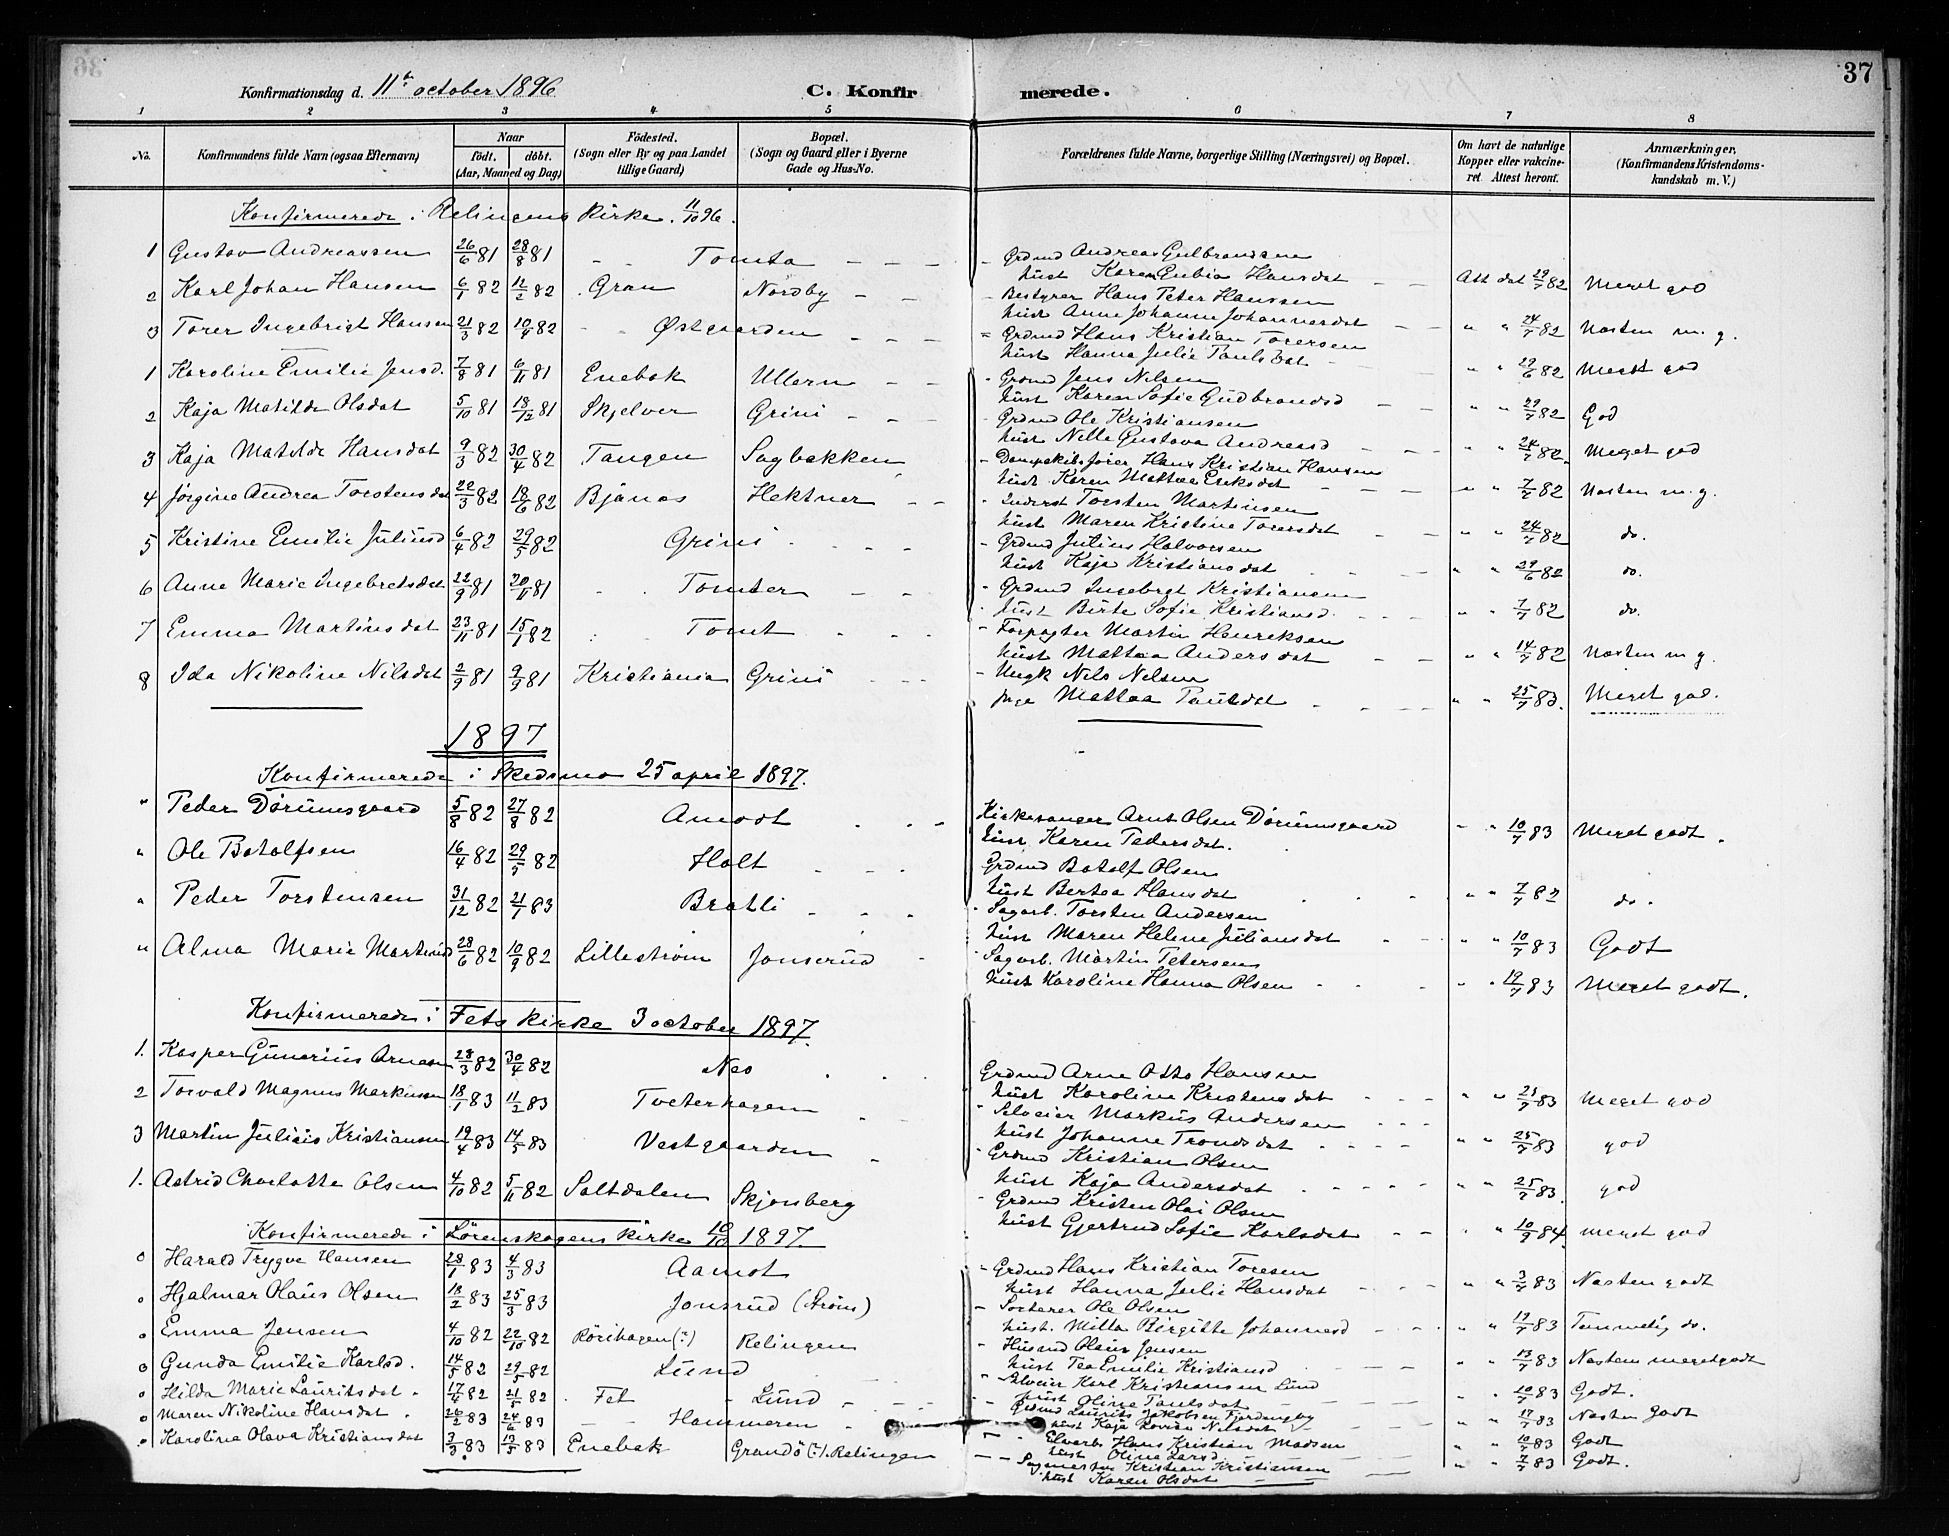 37
Konfirmationsdag d. 11te october 1896 C. Konfirmerede.
1 2 3 4 5 6 7 8
No. Konfirmandens fulde Navn (ogsaa Efternavn) Naar født. døbt. (Aar, Maaned og Dag) Födested. (Sogn eller By og paa Landet tillige Gaard) Bopæl. (Sogn og Gaard eller i Byerne Gade og Hus-No. Forældrenes fulde Navne, borgerlige Stilling (Næringsvei) og Bopæl. Om havt de naturlige Kopper eller vakcineret. Attest herom. Anmærkninger. (Konfirmandens Kristendomskundskab m. V.)
Konfirmerede i Relingens Kirke 11/10 96.
1 Gustav Andreassen 26/6 81 28/8 81 Tomta Grdmd Andreas Gulbrandsen
hust Karen Gubia Hansdat Att dat 29/7 82 Meget god
2 Karl Johan Hansen 6/1 82 12/2 82 Gran Nordby Bestyrer Hans Peter Hanssen
hust Anne Johanne Johannesdat " " 24/7 82 Næsten m. g.
3 Torer Ingebrigt Hansen 21/3 82 10/4 82 Østgaarden Grdmd Hans Kristian Torersen
hust Hanna Julie Paulsdat " " 29/6 82 Meget god
1 Karoline Emilie Jensd. 7/8 81 6/11 81 Enebak Ullern Grdmd Jens Nilsen
hust Karen Sofie Gudbrandsd " " 29/7 82 God
2 Kaja Matilde Olsdat 5/10 81 18/12 81 Skjelver Grini Grdmd Ole Kristiansen
hust Nelle Gustava Andreasd " " 24/7 82 Meget god
3 Kaja Matilde Hansdat 9/3 82 30/4 82 Tangen Sagbakken Dampskibsfører Hans Kristian Hansen
hust Karen Mattea Eriksdat " " 7/7 82 Næsten m. g.
4 Jørgine Andrea Torstensdat 22/3 82 18/6 82 Bjånes Hektner Inderst Torsten Martinsen
hust Maren Kristine Torersdat " " 24/7 82 do.
5 Kristine Emilie Juliusd 6/4 82 29/5 82 Grini Grdmd Julius Halvorsen
hust Kaja Kristiansdat " " 29/6 82 do.
6 Anne Marie Ingebretsdat 22/9 81 20/11 81 Tomter Grdmd Ingebret Kristiansen
hust Birte Sofie Kristiansd. " " 7/7 82 do.
7 Emma Martinsdat 23/11 81 15/1 82 Tomt Forpagter Martin Henriksen
hust Mattea Andersdat " " 14/7 82 Næsten m g.
8 Ida Nikoline Nilsdat 2/9 81 9/9 81 Kristiania Grini Ungk Nils Nelsen
pige Mattea Paulsdat " " 25/7 83. Meget god.
1897
Konfirmerede i Skedsmo 25 april 1897.
" Peder Dørumsgaard 5/8 82 27/8 82 Amodt Kirkesanger Arnt Olsen Dørumsgaard
hust Karen Pedersdat. " " 10/7 83 Meget godt.
" Ole Botolfsen 16/4 82 29/5 82 Holt Grdmd Botolf Olsen
hust Bertea Hansdat " " 7/7 82 do.
" Peder Torstensen 31/12 82 21/1 83 Bratli Sagarb. Torsten Andersen
hust Maren Helene Juliansdat " " 10/7 83 Godt
" Alma Marie Martinsd 28/6 82 10/9 82 Lillestrøm Jonsrud Sagarb. Martin Petersen
hust Karoline Hanna Olsen " " 19/7 83 Meget godt.
Konfirmerede i Fets Kirke 3 october 1897.
1. Kasper Gunerius Arnesen 28/3 82 30/4 82 Nes Grdmd Arne Otto Hansen
hust Karoline Kristensdat " " 21/7 83 Meget god
2 Torvald Magnus Markussen 18/1 83 11/2 83 Toeterhagen Selveier Markus Andersen
hust Johanne Trondsdat " " 25/7 83 god
3 Martin Julius Kristiansen 19/4 83 14/5 83 Vestgaarden Grdmd Kristian Olsen
hust Kaja Andersdat " " 25/7 83. god
1. Astrid Charlotte Olsen 4/10 82 5/11 82 Saltdalen Skjønberg Grdmd Kristen Olai Olsen
hust Gjertrud Sofie Karlsdat " " 10/9 84. meget god
Konfirmerede i Lørenskogens Kirke 10/10 1897.
o Harald Trygve Hansen 28/1 83 4/3 83 Aamot Grdmd Hans Kristian Toresen
hust Hanna Julie Hansdat " " 3/7 83 Næsten godt
o Hjalmar Olaus Olsen 18/2 83 25/3 83 Jonsrud (Strøm) Sorterer Ole Olsen
hust. Milla Birgitte Johannesd " " 19/7 83 Temmelig do.
o Emma Jensen 4/10 82 22/10 82 Rörihagen (:) Relingen Husmd Olaus Jensen
hust Tea Emilie Kristiansd " " 13/7 83 Næsten meget godt
o Gunda Emilie Karlsd. 14/5 82 29/5 82 Lund Selveier Karl Kristiansen Lund
hust Oline Paulsdat " " 10/7 83 Godt.
o Hilda Marie Lauritsdat 17/4 82 21/5 82 Fet Lund Grdmd Laurits Jakobsen Fjerdingby
hust Kaja Lovise Nilsdat " " 17/7 83 Næsten Godt
o Maren Nikoline Hansdat 26/2 83 24/6 83 Hammeren Elverb. Hans Kristian Madsen
hust Oline Larsd " " 10/7 83 Godt
o Karoline Olava Kristiansdat 3/3 83 13/5 83 Enebak Grandö (:). Relingen Sagmester Kristian Kristiansen
hust Karen Olsdat " " 7/7 83 Godt.